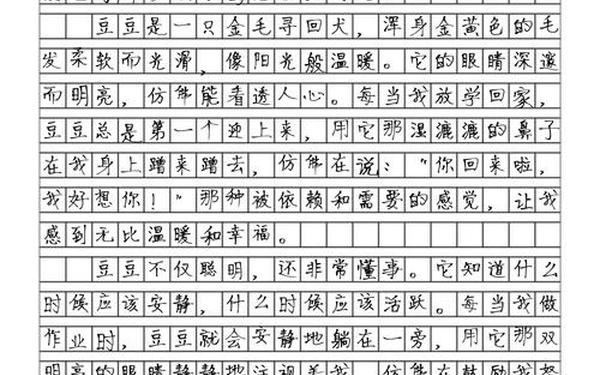 豆豆是一只金毛寻回犬，浑身金黄色的毛
发柔软而光滑，像阳光般温暖。它的眼睛深邃
而明亮，仿佛能看透人心。每当我放学回家，
豆豆总是第一个迎上来，用它那湿漉漉的鼻子
在我身上蹭来蹭去，仿佛在说：“你回来啦，
我好想你！”那种被依赖和需要的感觉，让我
感到无比温暖和幸福。
豆豆不仅聪明，还非常懂事。它知道什么
时候应该安静，什么时候应该活跃。每当我做
作业时，豆豆就会安静地躺在一旁，用它那双
明亮的眼睛静静地注视着我，仿佛在鼓励我努